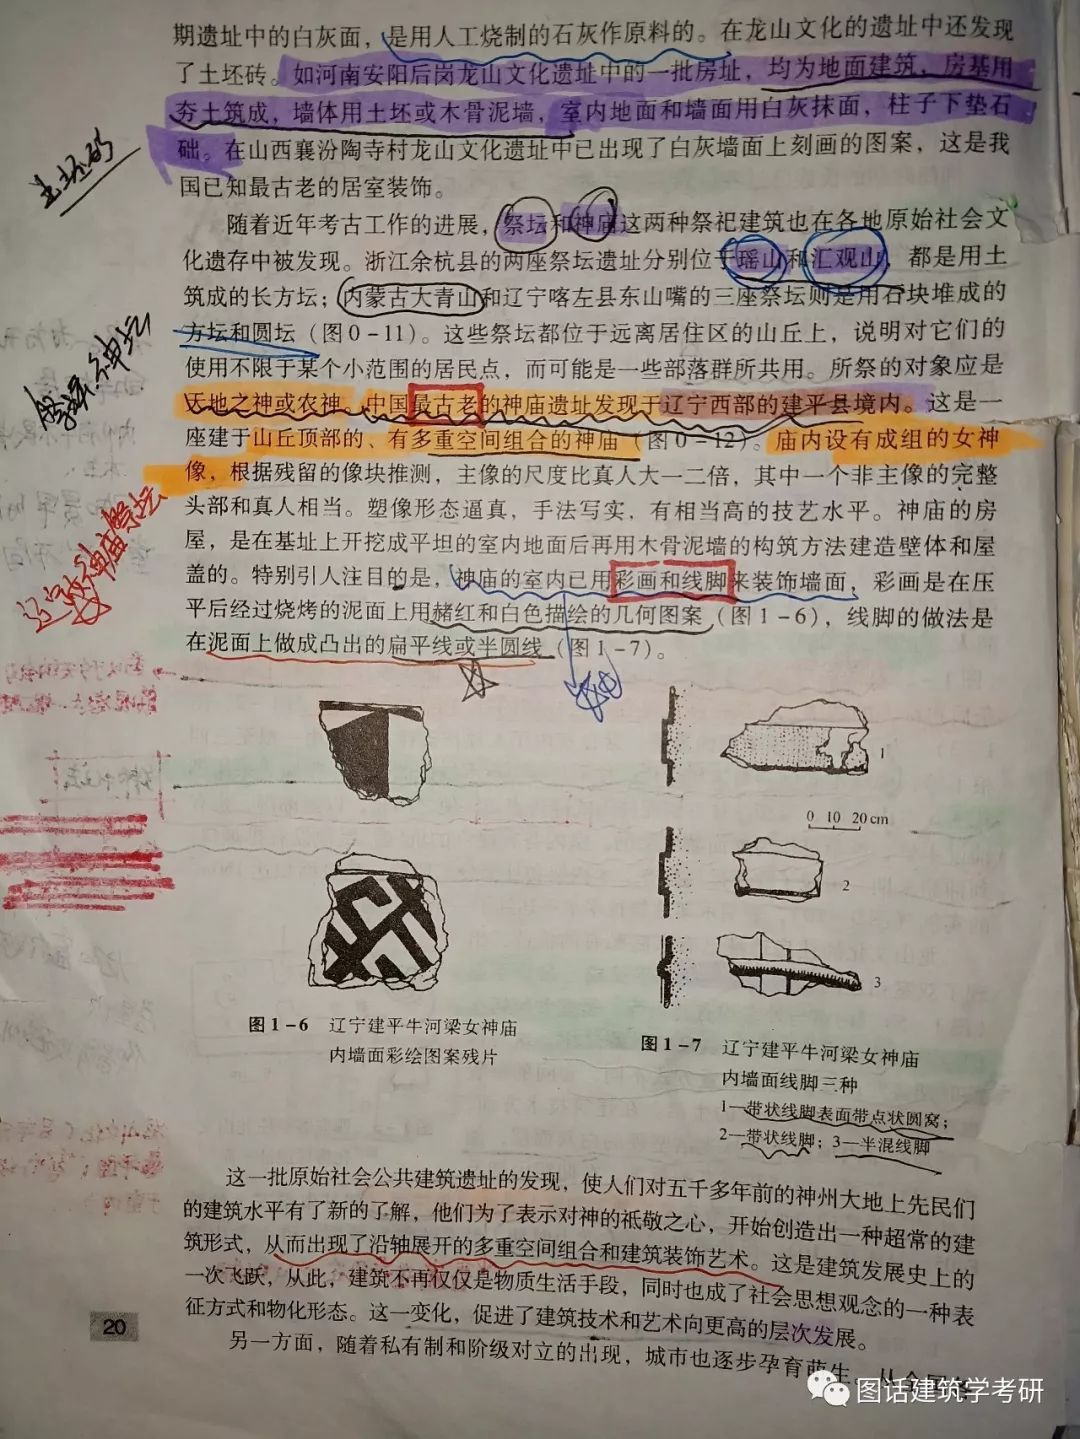 期遗址中的白灰面，是用人工烧制的石灰作原料的。在龙山文化的遗址中还发现
了土坯砖。如河南安阳后岗龙山文化遗址中的一批房址，均为地面建筑，房基用
夯土筑成，墙体用土坯或木骨泥墙，室内地面和墙面用白灰抹面，柱子下垫石
础。在山西襄汾陶寺村龙山文化遗址中已出现了白灰墙面上刻画的图案，这是我
国已知最古老的居室装饰。
土坯砖
随着近年考古工作的进展，祭坛和神庙这两种祭祀建筑也在各地原始社会文
化遗存中被发现。浙江余杭县的两座祭坛遗址分别位于瑶山和汇观山，都是用土
筑成的长方坛；内蒙古大青山和辽宁喀左县东山嘴的三座祭坛则是用石块堆成的
方坛和圆坛（图0-11）。这些祭坛都位于远离居住区的山丘上，说明对它们的
使用不限于某个小范围的居民点，而可能是一些部落群所共用。所祭的对象应是
天地之神或农神。中国最古老的神庙遗址发现于辽宁西部的建平县境内。这是一
座建于山丘顶部的、有多重空间组合的神庙（图0-12）。庙内设有成组的女神
像，根据残留的像块推测，主像的尺度比真人大一二倍，其中一个非主像的完整
头部和真人相当。塑像形态逼真，手法写实，有相当高的技艺水平。神庙的房
屋，是在基址上开挖成平坦的室内地面后再用木骨泥墙的构筑方法建造壁体和屋
盖的。特别引人注目的是，神庙的室内已用彩画和线脚来装饰墙面，彩画是在压
平后经过烧烤的泥面上用赭红和白色描绘的几何图案（图1-6），线脚的做法是
在泥面上做成凸出的扁平线或半圆线（图1-7）。
1
0 10 20 cm
2
3
图1-6 辽宁建平牛河梁女神庙
内墙面彩绘图案残片
图1-7 辽宁建平牛河梁女神庙
内墙面线脚三种
1—带状线脚表面带点状圆窝；
2—带状线脚；3—半混线脚
这一批原始社会公共建筑遗址的发现，使人们对五千多年前的神州大地上先民们
的建筑水平有了新的了解，他们为了表示对神的祗敬之心，开始创造出一种超常的建
筑形式，从而出现了沿轴展开的多重空间组合和建筑装饰艺术。这是建筑发展史上的
一次飞跃，从此，建筑不再仅仅是物质生活手段，同时也成了社会思想观念的一种表
征方式和物化形态。这一变化，促进了建筑技术和艺术向更高的层次发展。
20
另一方面，随着私有制和阶级对立的出现，城市也逐步孕育萌生。从
图话建筑学考研